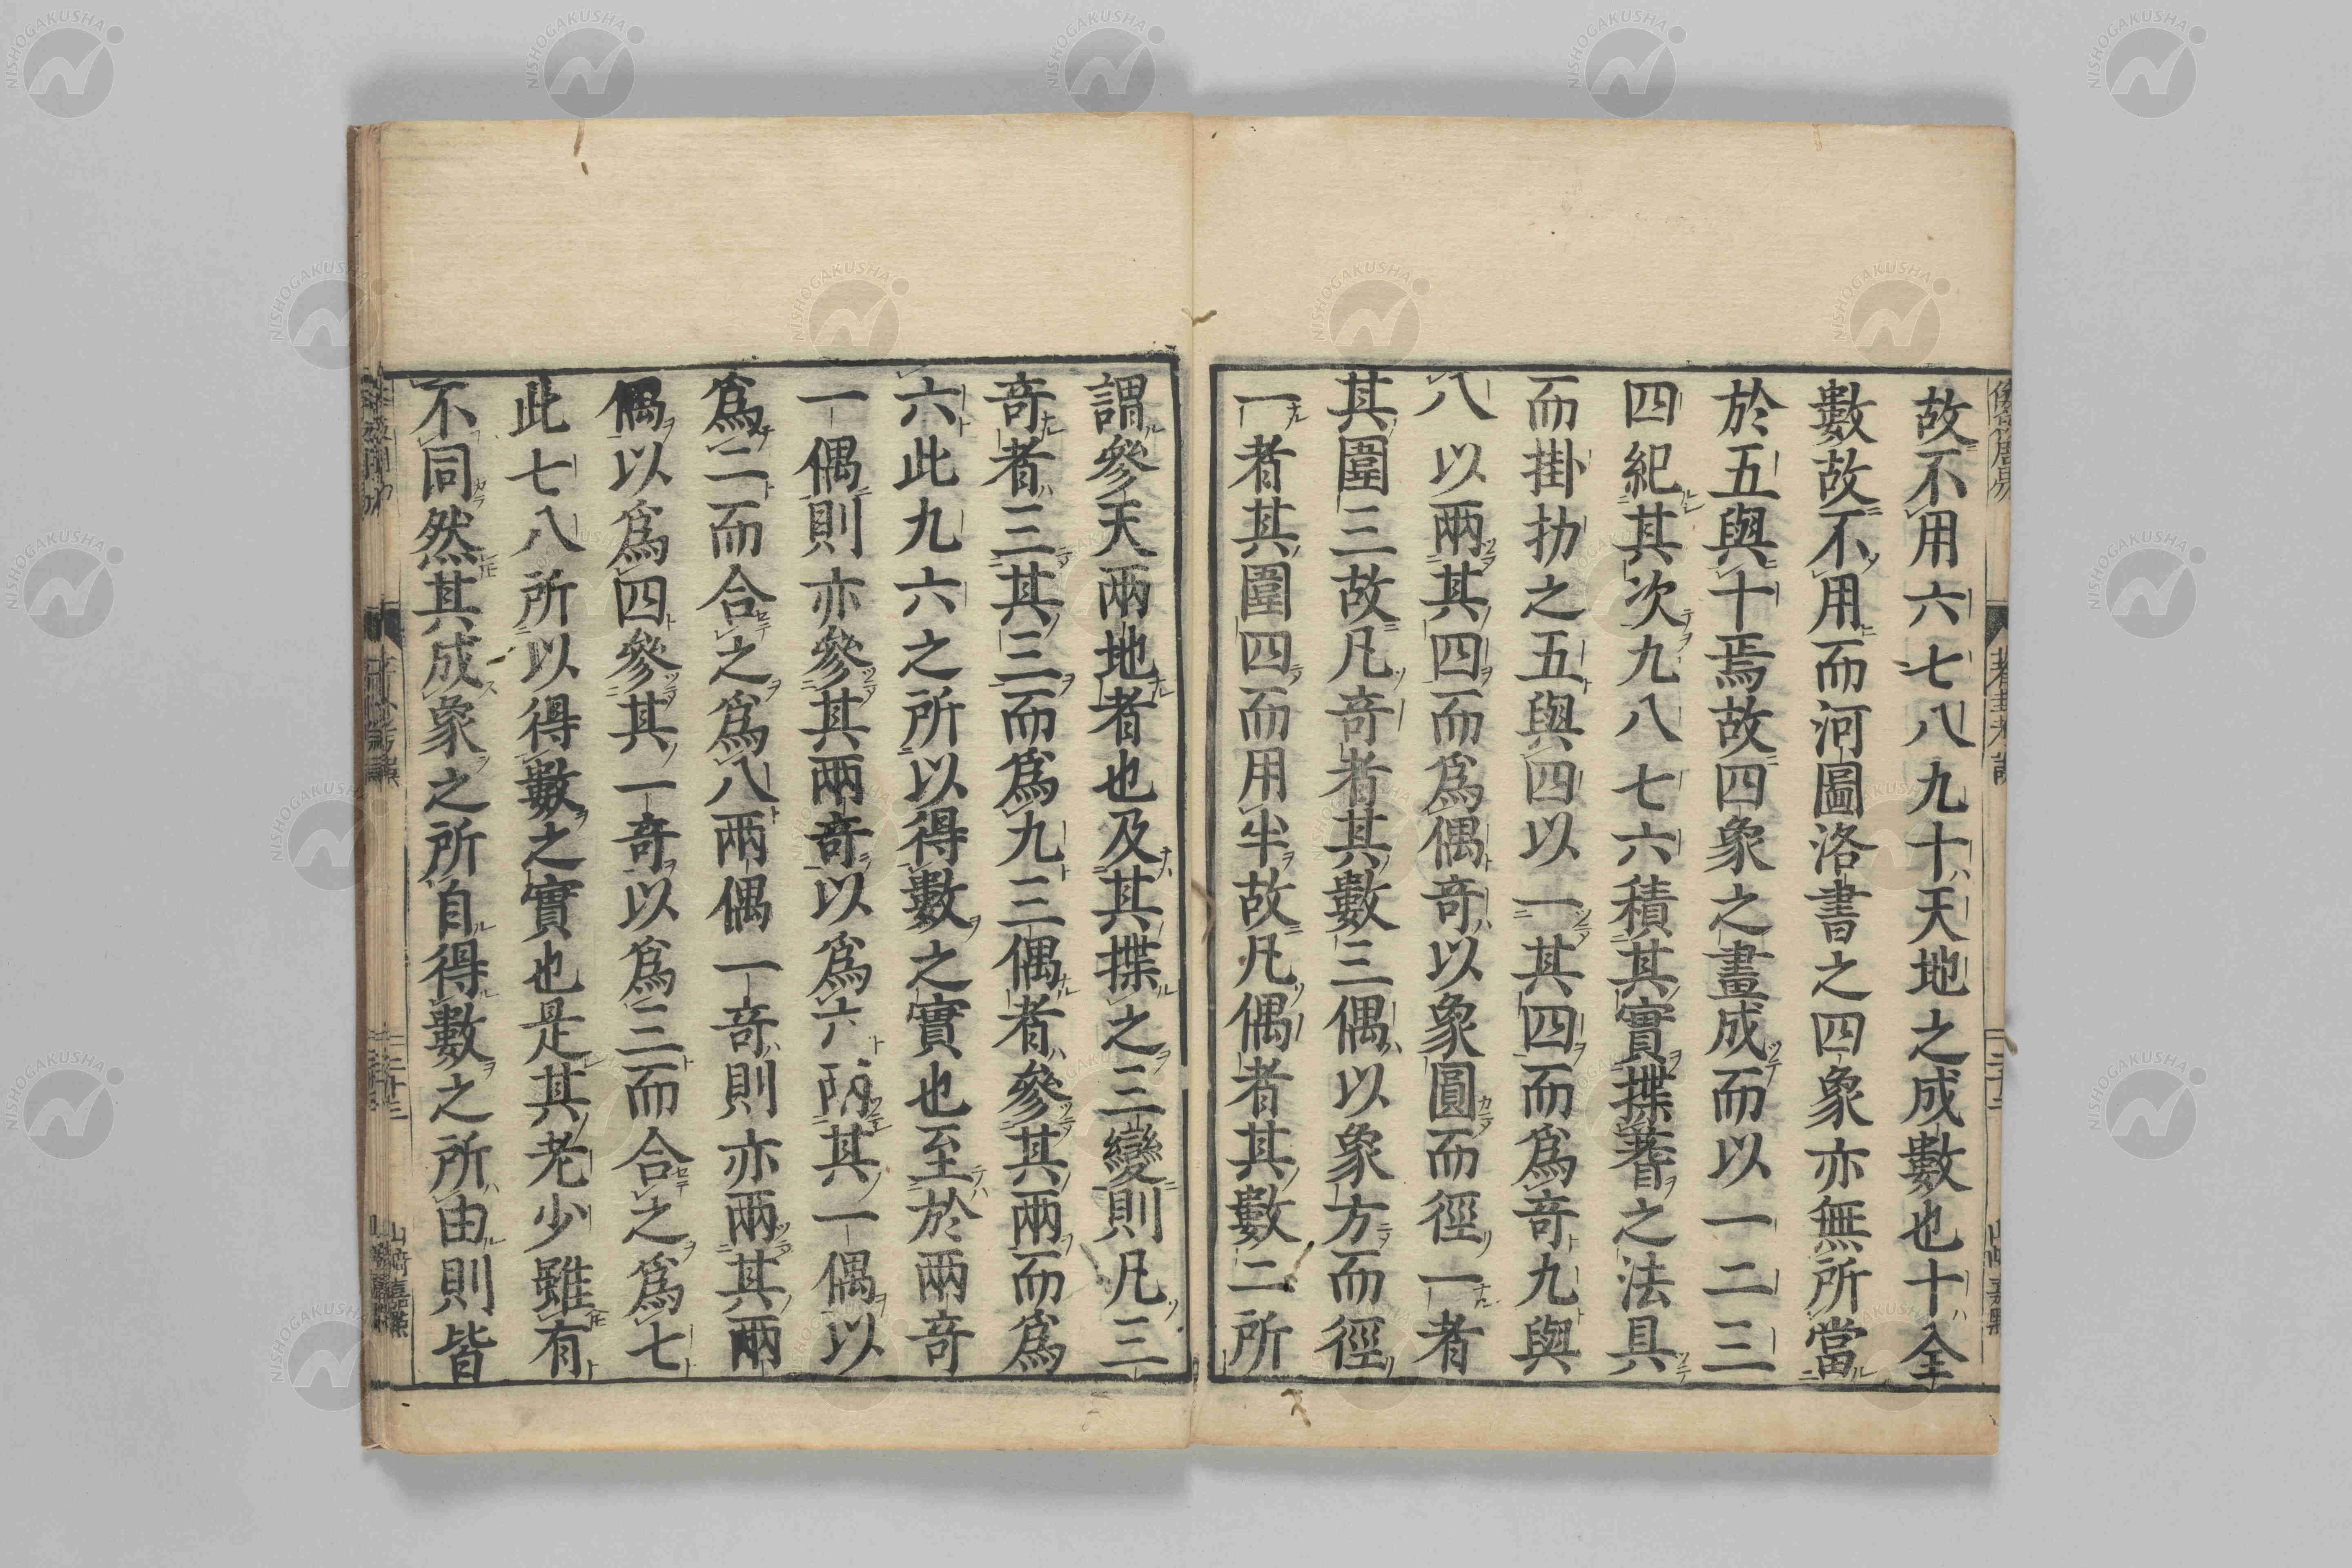 故不用六七八九十天地之成數也十全
數故不用而河圖洛書之四象亦無所當
於五與十焉故四象之畫成而以一二三
四紀其次九八七六積其實揲蓍之法具
而掛扐之五與四以一其四而爲奇九與
八以兩其四而爲偶奇以象圓而徑一者
其圍三故凡奇者其數三偶以象方而徑
一者其圍四而用半故凡偶者其數二所
謂參天兩地者也及其揲之三變則凡三
奇者三其三而爲九三偶者參其兩而爲
六此九六之所以得數之實也至於兩奇
一偶則亦參其兩奇以爲六兩其一偶以
爲二而合之爲八兩偶一奇則亦兩其兩
偶以爲四參其一奇以爲三而合之爲七
此七八所以得數之實也是其老少雖有
不同然其成象之所自得數之所由則皆
NISHOGAKUSHA